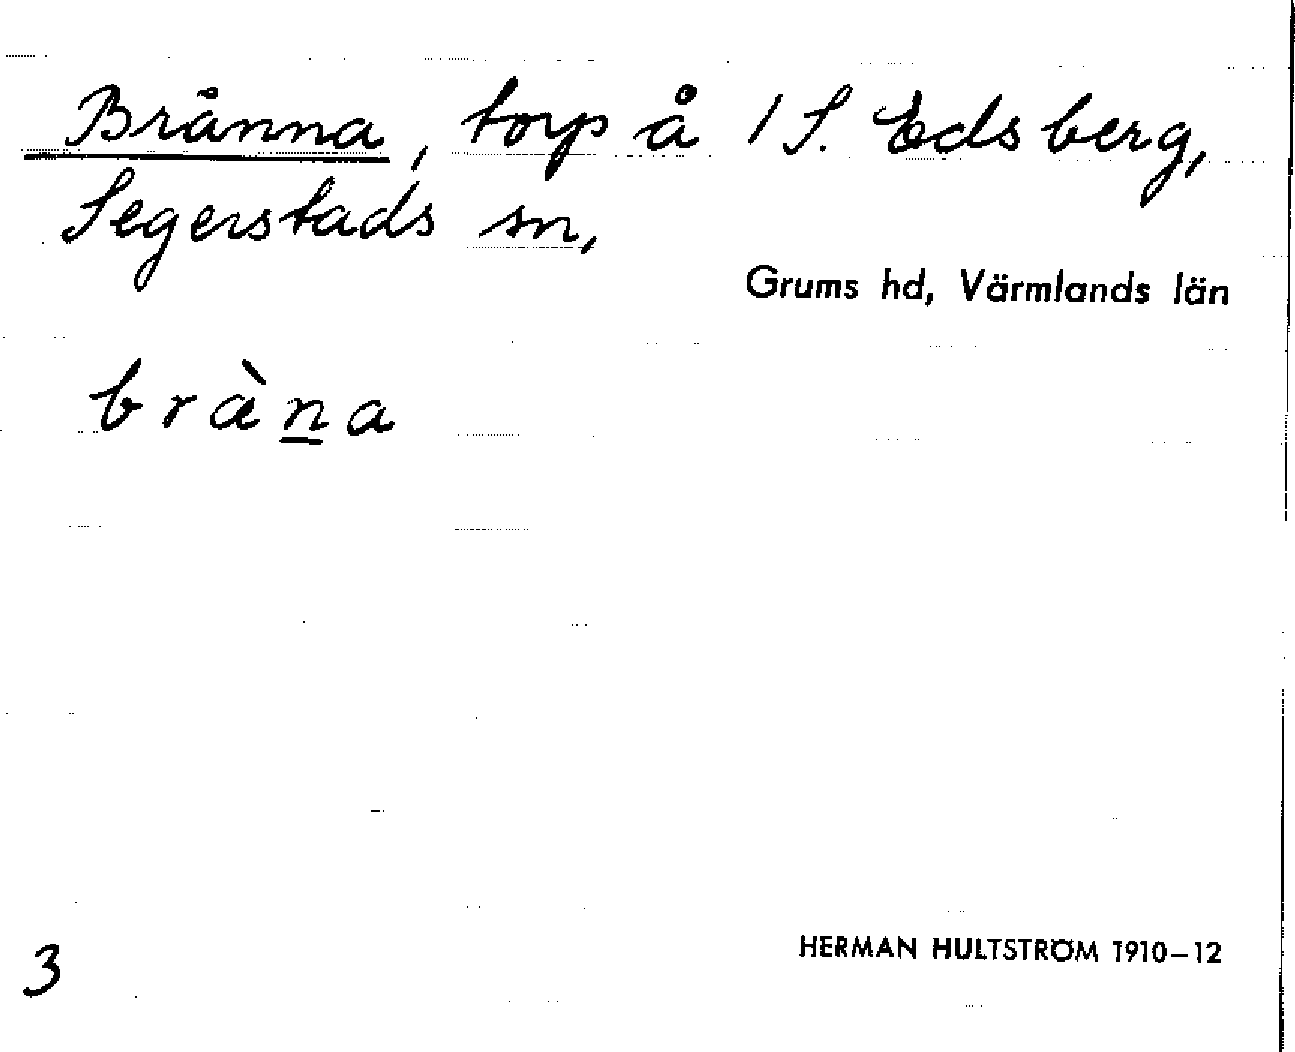 Bränna, torp å 1 S. Edsberg,
Segerstads sn,
Grums hd, Värmlands län
bræ̀n̲a
3
HERMAN HULTSTRÖM 1910–12